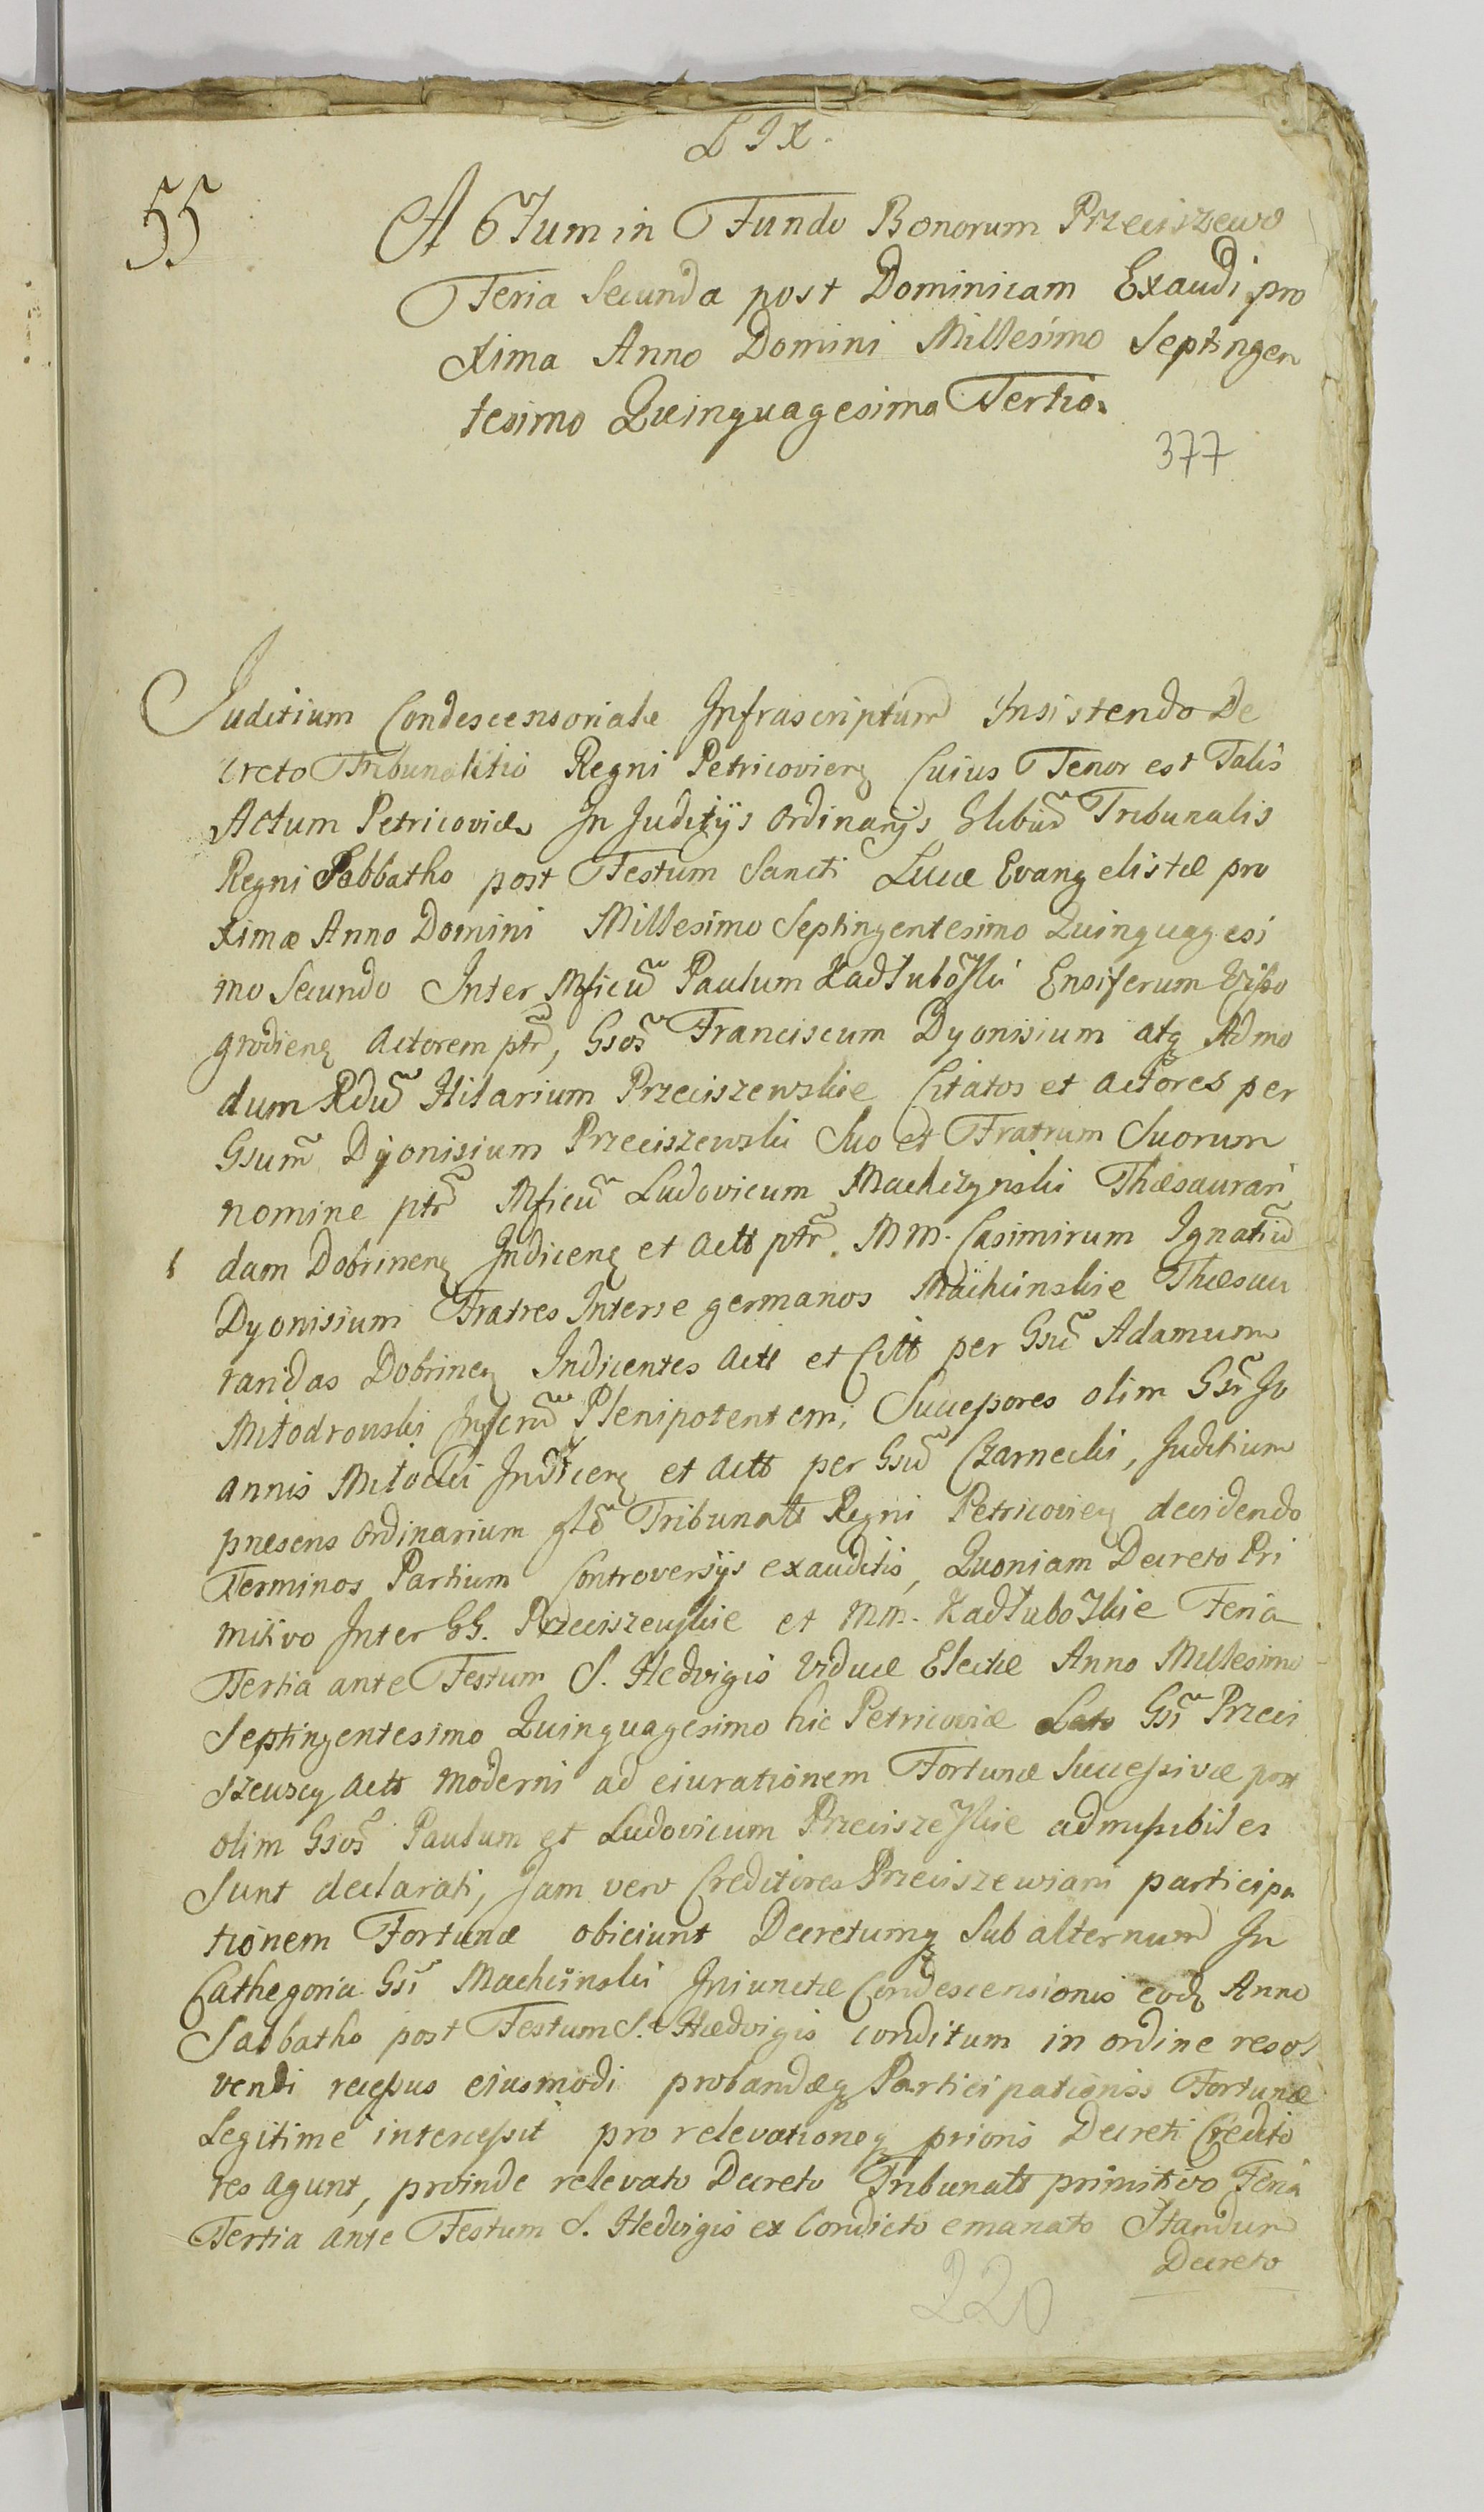 LIX.
55
Actum in Fundo Bonorum Przeciszewo
Feria Secunda post Dominicam Exaudi pro
xima Anno Domini Millesimo Septingen
tesimo Quinquagesimo Tertio.
377
Juditium Condescensoriale Infrascriptum Insistendo De
creto Tribunalitio Regni Petricovienꝫ Cuius Tenor est Talis
Actum Petricoviæ In Juditijs Ordinarijs Glibus Tribunalis
Regni Sabbatho post Festum Sancti Lucæ Evangelistæ pro
ximæ Anno Domini Millesimo Septingentesimo Quinquagesi
mo Secundo Inter Mficũ Paulum Kadłubowski Ensiferum Wisso
grodienꝫ Actorem ptr̃, Gsos̃ Franciscum Dyonisium atqꝫ Admo
dum Rdũ Hilarium Przeciszewskie Citatos et Actores per
Gsum̃ Dyonisium Przeciszewski Suo et Fratrum Suorum
nomine ptr̃ Mficũ Ludovicum Machczynski Thæsaurari
dam Dobrinenꝫ Indicenꝫ et Actt ptr̃. MM. Casimirum Ignatiũ
Dyonisium Fratres Interse germanos Machcinskie Thæsau
raridas Dobrinenꝫ Indicentes Actt et Citt per Gsũ Adamum
Miłodrowski Plenipotentem, Successores olim Gsi Jo
annis Miłocki Indicenꝫ et Actt per Gsũ Czarnecki, Juditium
præsens Ordinarium gle Tribunalt Regni Petricovienꝫ decidendo
Terminos Partium Controversijs exauditis, Quoniam Decreto Pri
mitivo Inter GG. Przeciszewskie et MM. Kadłubowskie Feria
Tertia ante Festum S. Hedvigis Viduæ Electæ Anno Millesimo
Septingentesimo Quinquagesimo hic Petricoviæ Lato Gsi Przeci
szewscy Actt moderni ad eiurationem Fortunæ Successivæ post
olim Gsos̃ Paulum et Ludovicum Przeciszewskie admissibiles
Sunt declarati, Jam vero Creditores Przeciszewiani participa
tionem Fortunæ obiciunt Decretumqꝫ Subalternum In
Cathegoria Gsi Machcinski Iniunctæ Condescensionis eodꝫ Anno
Sabbatho post Festum S. Hædvigis conditum in ordine resol
vendi recessus eiusmodi probandæqꝫ Participationis Fortunæ
Legitime intercessit pro relevationeqꝫ prioris Decreti Credito
res agunt, proinde relevato Decreto Tribunalt primitivo Feria
Tertia ante Festum S. Hedvigis ex Condicto emanato Standum
Decreto
220